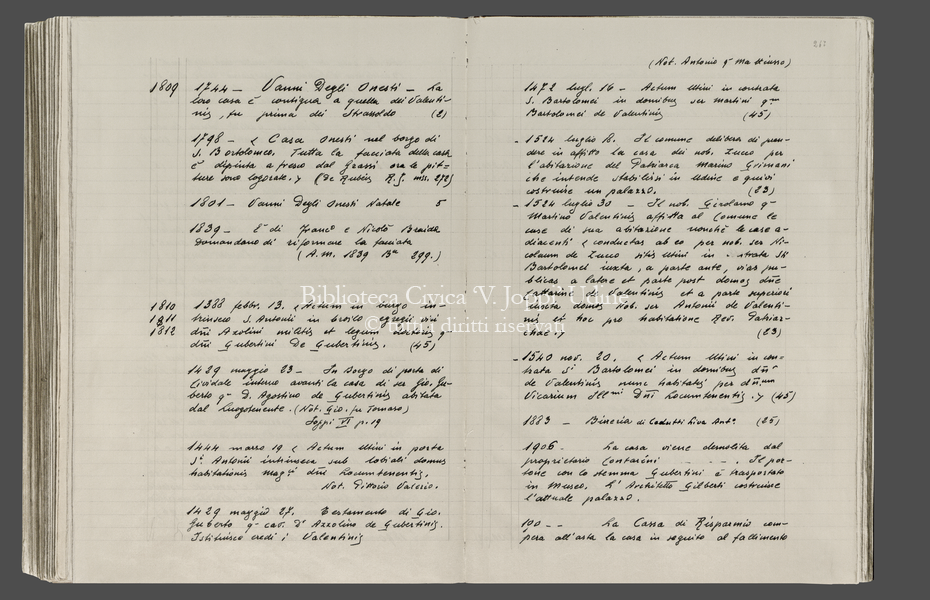 1809 1744 — Vanni Degli Onesti — La
loro casa è contigua a quella dei Valenti-
nis, fu prima dei Strassoldo (2)
1798 — « Casa Onesti nel borgo di
S. Bortolomeo. Tutta la facciata della casa
è dipinta a fresco dal Grassi ora le pit-
ture sono logorate.» (De Rubeis R.J. mss. 272)
1801 — Vanni Degli Onesti Natale 5
1839 — di Franco e Nicolò Braida
domandano di riformare la facciata
(A.M. 1839 Ba 299.)
1810 1388 febbr. 13. « Actum in burgo in-
1811 trinseco S. Antonii in broilo egregii viri
1812 dmi Azolini militis et legum doctoris q
dmi Gubertini De Gubertinis. (45)
1429 maggio 23 — In Borgo di porta di
Cividale interno avanti la casa di ser Gio. Gu-
berto q D. Agostino de Gubertinis abitata
dal luogotenente. (Not. Gio. fu Tomaso)
Joppi VI p. 19
1444 marzo 19 « Actum Utini in porta
S. Antonii intrinseca sub lobiali domus
habitationis mag.ci dmi Locumtenentis.
Not. Pittorio Valerio.
1429 maggio 27. Testamento di Gio.
Guberto q cav. Dr Azzolino de Gubertinis.
Istituisce eredi i Valentinis
267
(Not. Antonio q Matteusso)
1472 lugl. 16 — Actum Utini in contrata
S. Bartolomei in domibus ser Martini qm
Bartolomei de Valentinis (45)
- 1524 luglio 8. Il comune delibera di pren-
dere in affitto la casa dei nob. Zucco per
l'abitazione del Patriarca Marino Grimani
che intende stabilirsi in Udine e quivi
costruire un palazzo. (23)
- 1524 luglio 30 — Il nob. Girolamo q
Martino Valentinis affitta al Comune le
case di sua abitazione nonchè le case a-
diacenti « conductas ab eo per nob. ser Ni-
colaum de Zucco sitis Utini in strata Sti
Bartolomei iuxta, a parte ante, vias pu-
blicas a latere et parte post domos dne
Cattarine de Valentinis et a parte superiori
iuxta domos Nob. ser Antonii de Valenti-
nis et hoc pro habitatione Rev. Patriar-
chae.» (23)
- 1540 nov. 20. « Actum Utini in con-
trata Sti Bartolomei in domibus
de Valentinis nunc habitatis per
Vicarium Ill.mi Dmi Locumtenentis.» (45)
1883 — Birreria di Cadutti Liva Ant. (25)
1906. La casa viene demolita dal
proprietario Contarini. Il por-
tone con lo stemma Gubertini è trasportato
in Museo. L'Architetto Gilberti costruisce
l'attuale palazzo.
100 - - La Cassa di Risparmio com-
pera all'asta la casa in seguito al fallimento
Biblioteca Civica 'V. Joppi' Udine
© tutti i diritti riservati